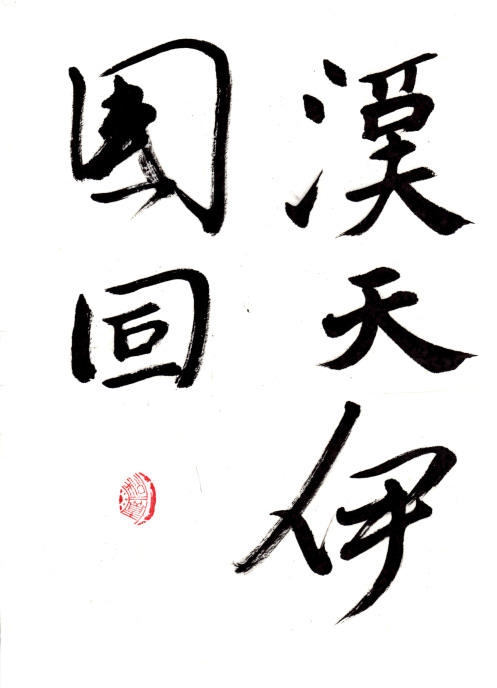 漢天伊
國回